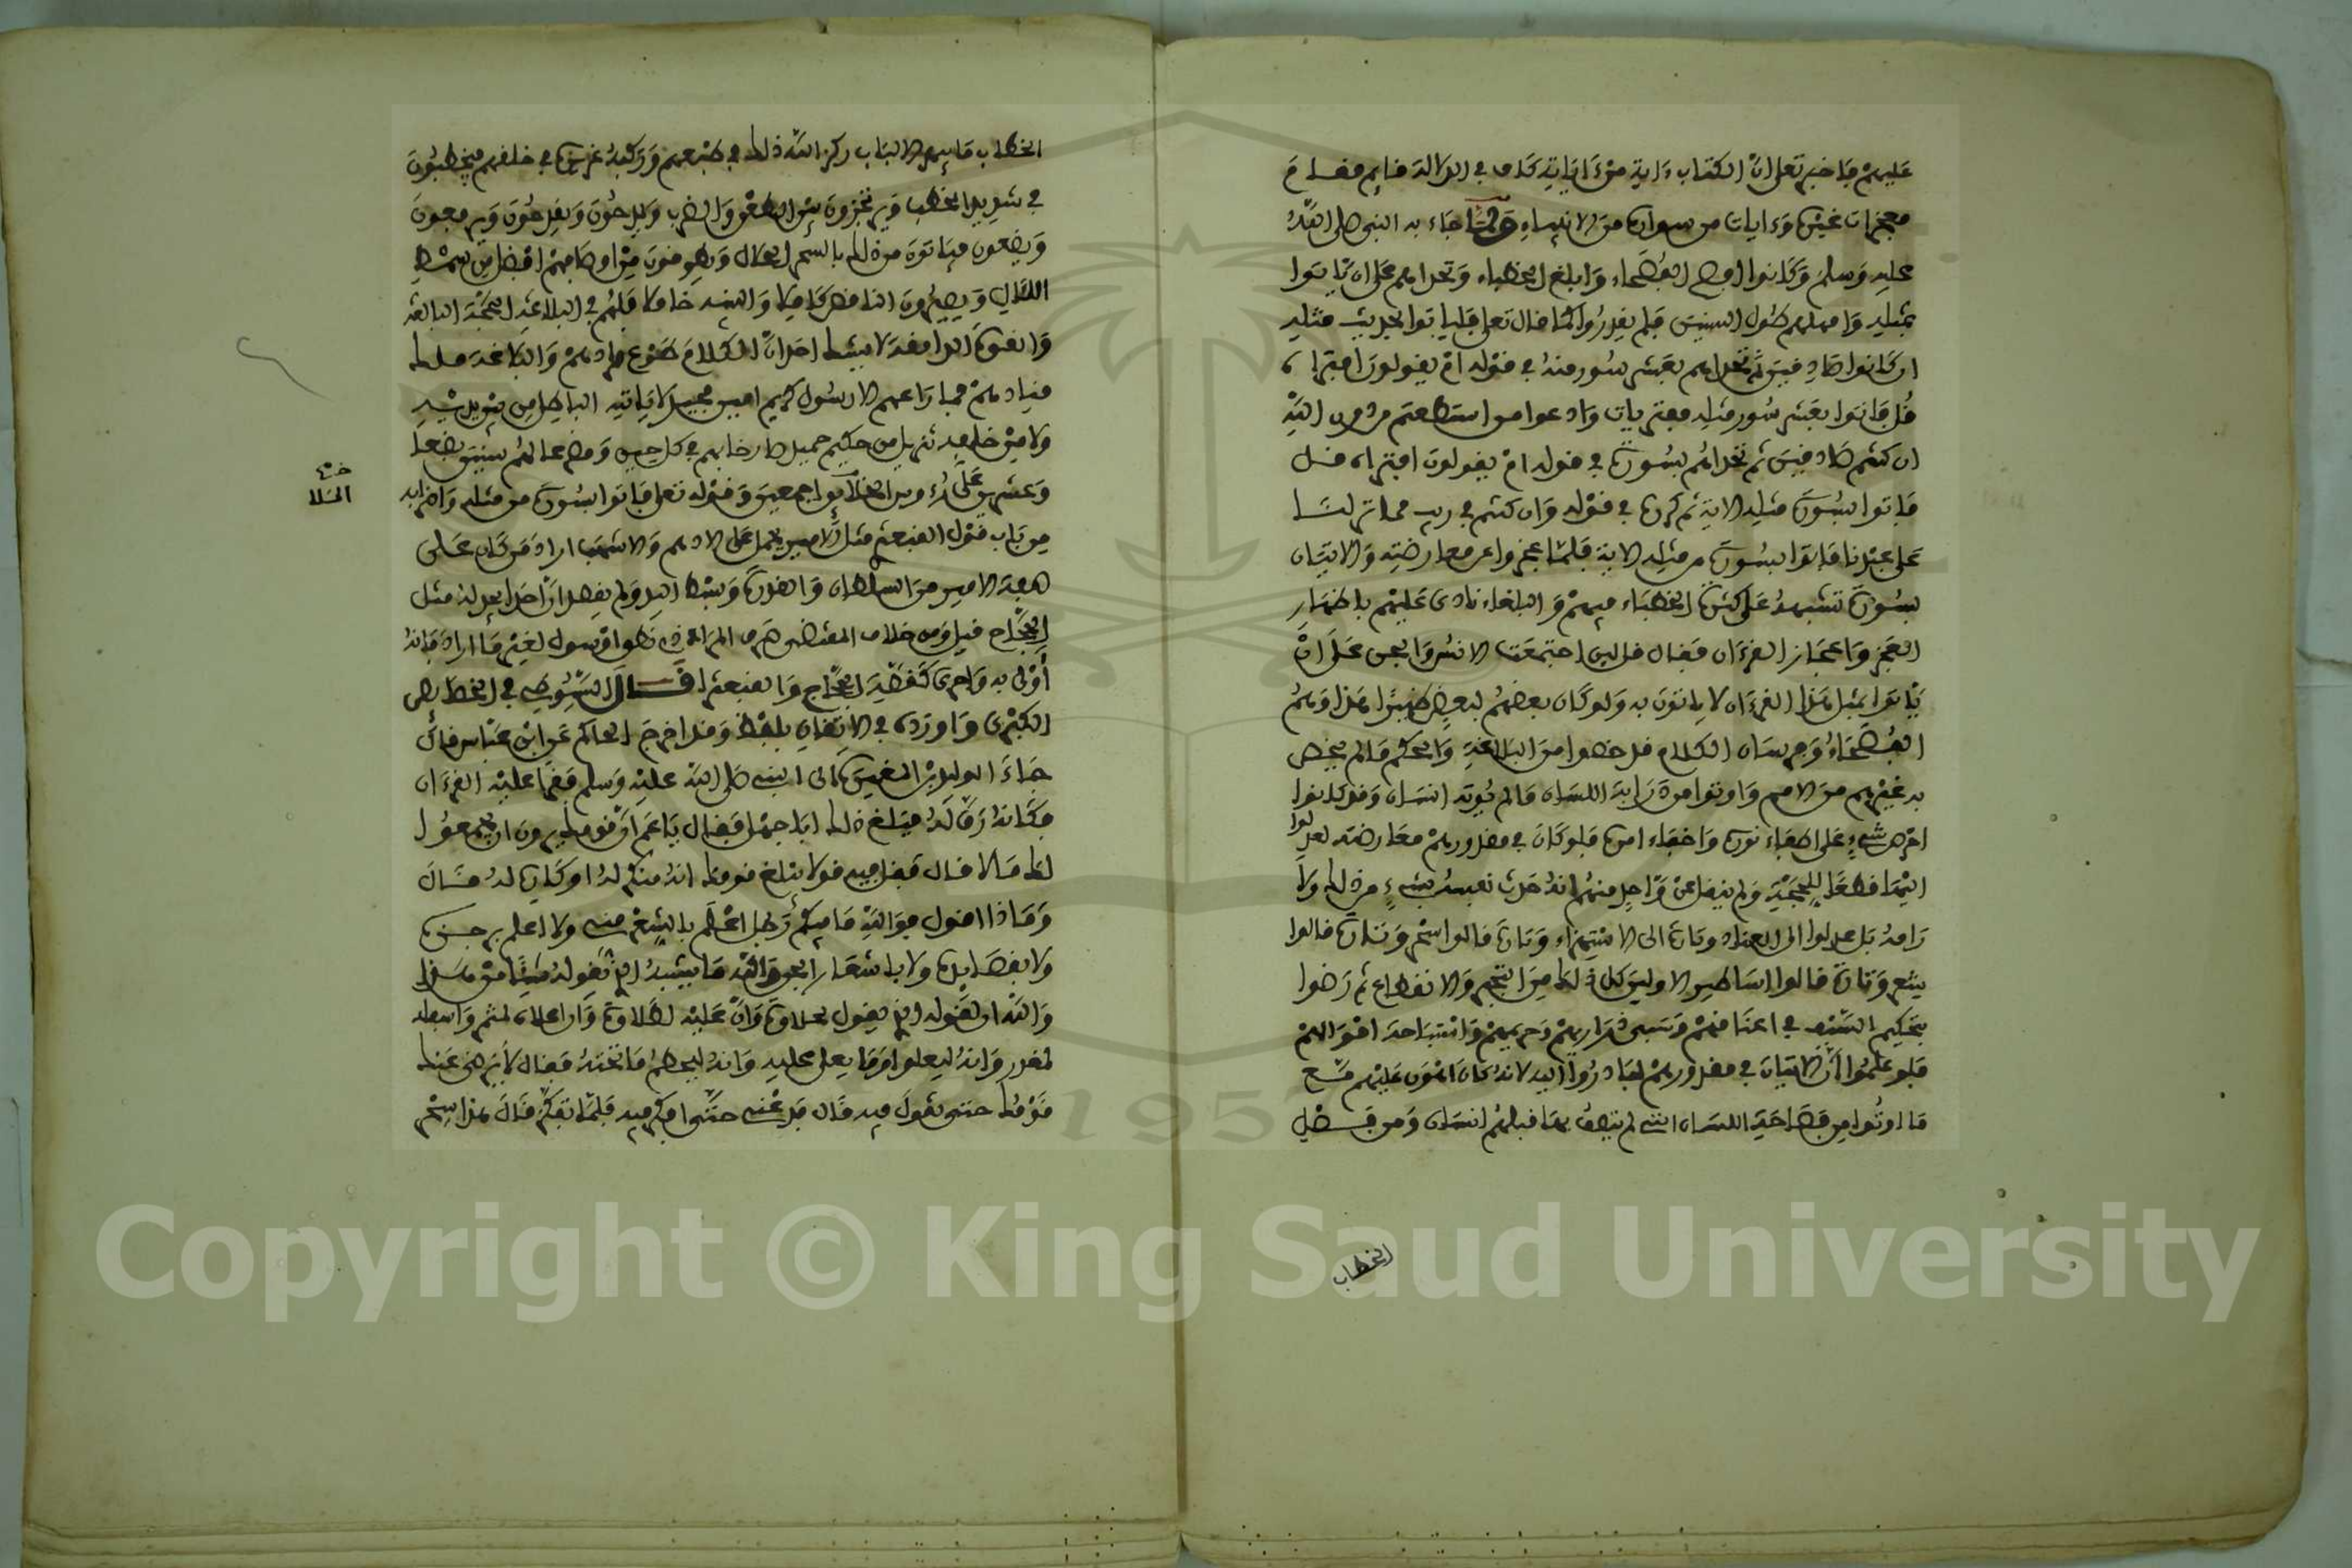 عليهم فاخبر تعلى ان الكتاب ءاية من ءاياته كاف في الدلالة قايم مقام
معجزات غيره وءايات من سواه من الانبياء ولما جاء به النبي صلى الله
عليه وسلم وكانوا افصح الفصحاء وابلغ الخطباء وتحداهم على ان ياتوا
بمثله وامهلهم طول السنين فلم يقدروا كما قال تعلى فلياتوا بحديث مثله
ان كانوا صادقين ثم تحداهم بعشر سور منه في قوله ام يقولون افتراه
قل فاتوا بعشر سور مثله مفتريات وادعوا من استطعتم من دون الله
ان كنتم صادقين ثم تحداهم بسورة في قوله ام يقولون افتراه قل
فاتوا بسورة مثله الاية ثم كرره في قوله وان كنتم في ريب مما نزلنا
على عبدنا فاتوا بسورة من مثله الاية فلما عجزوا عن معارضته والاتيان
بسورة تشبهه على كثرة الخطباء فيهم والبلغاء نادى عليهم باظهار
العجز واعجاز القرءان فقال قل لين اجتمعت الانس والجن على ان
ياتوا بمثل هذا القرءان لا ياتون به ولو كان بعضهم لبعض ظهيرا هذا وهم
الفصحاء وفرسان الكلام قد خصوا من البلاغة والحكم ما لم يخص
به غيرهم من الامم واوتوا من ذرابة اللسان ما لم يوته انسان وقد كانوا
احرص شيء على اطفاء نوره واخفاء امره فلو كان في مقدورهم معارضته لعدلوا
اليها قطعا للحجة ولم ينقل عن واحد منهم انه حدث نفسه بشيء من ذلك ولا
رامه بل عدلوا الى العناد وتارة الى الاستهزاء وتارة قالوا سحر وتارة قالوا
شعر وتارة قالوا اساطير الاولين كل ذلك من التحير والانقطاع ثم رضوا
بتحكيم السيف في اعناقهم وسبي ذراريهم وحريمهم واستباحة اموالهم
فلو علموا ان الاتيان في مقدورهم لبادروا اليه لانه كان اهون عليهم مع
ما اوتوا من فصاحة اللسان التي لم يتصف بها قبلهم انسان ومن فصل
الخطاب
الخطاب ما يبهر الالباب ركز الله ذلك في طبعهم وركبه غريزة في خلقهم فيخطبون
في شديد الخطب ويرتجزون بين الطعن والضرب ويمدحون ويقدحون ويرفعون
ويضعون فياتون من ذلك بالسحر الحلال ويطوقون من اوصافهم افضل من سمط
اللئال ويصيرون الناقص كاملا والنبيه خاملا فلهم في البلاغة الحجة البالغة
والقوة الدامغة لا يشك احد ان الكلام طوع مرادهم والبلاغة ملك
قيادهم فما راعهم الا رسول كريم امين مجيد لا ياتيه الباطل من بين يديه
ولا من خلفه تنزيل من حكيم حميد صارخا بهم في كل حين ومقرعا لهم سنين بضعا
وعشرين على رءوس الخلايق اجمعين وقوله تعلى فاتوا بسورة من مثله
خ مع
الملا
من باب قول القبعثرى مثل الامير يحمل على الادهم والاشهب اراد من كان على
صفة الامير من السلطان والقدرة وبسط اليد ولم يقصد ان احدا
الحجاج قيل ومن خلاف المقتضى
اولى به واحرى كقضية الحجاج والقبعثرى قال السيوطي في الخصايص
الكبرى واورده في الاتقان بلفظ وقد اخرج الحاكم عن ابن عباس قال
جاء الوليد بن المغيرة الى النبي صلى الله عليه وسلم فقرا عليه القرءان
فكانه رق له فبلغ ذلك ابا جهل فقال يا عم ان قومك يرون ان يجمعوا
لك مالا قال فقل فيه قولا يبلغ قومك انه منكر له او كاره له قال
وماذا اقول فو الله ما فيكم رجل اعلم بالشعر مني ولا اعلم برجزه
ولا بقصايده ولا باشعار الجن والله ما يشبه الذي تقوله شيئا من هذا
والله ان لقوله الذي يقول لحلاوة وان عليه لطلاوة وان اعلاه لمثمر واسفله
لمغدق وانه ليعلو وما يعلى عليه وانه ليحطم ما تحته فقال لا يرضى عنك
قومك حتى تقول فيه قال فدعني حتى افكر فيه فلما تفكر قال هذا سحر